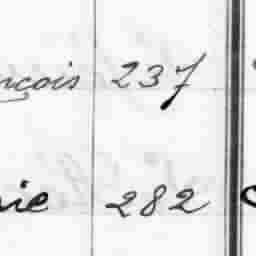 nçois 237
rie 282